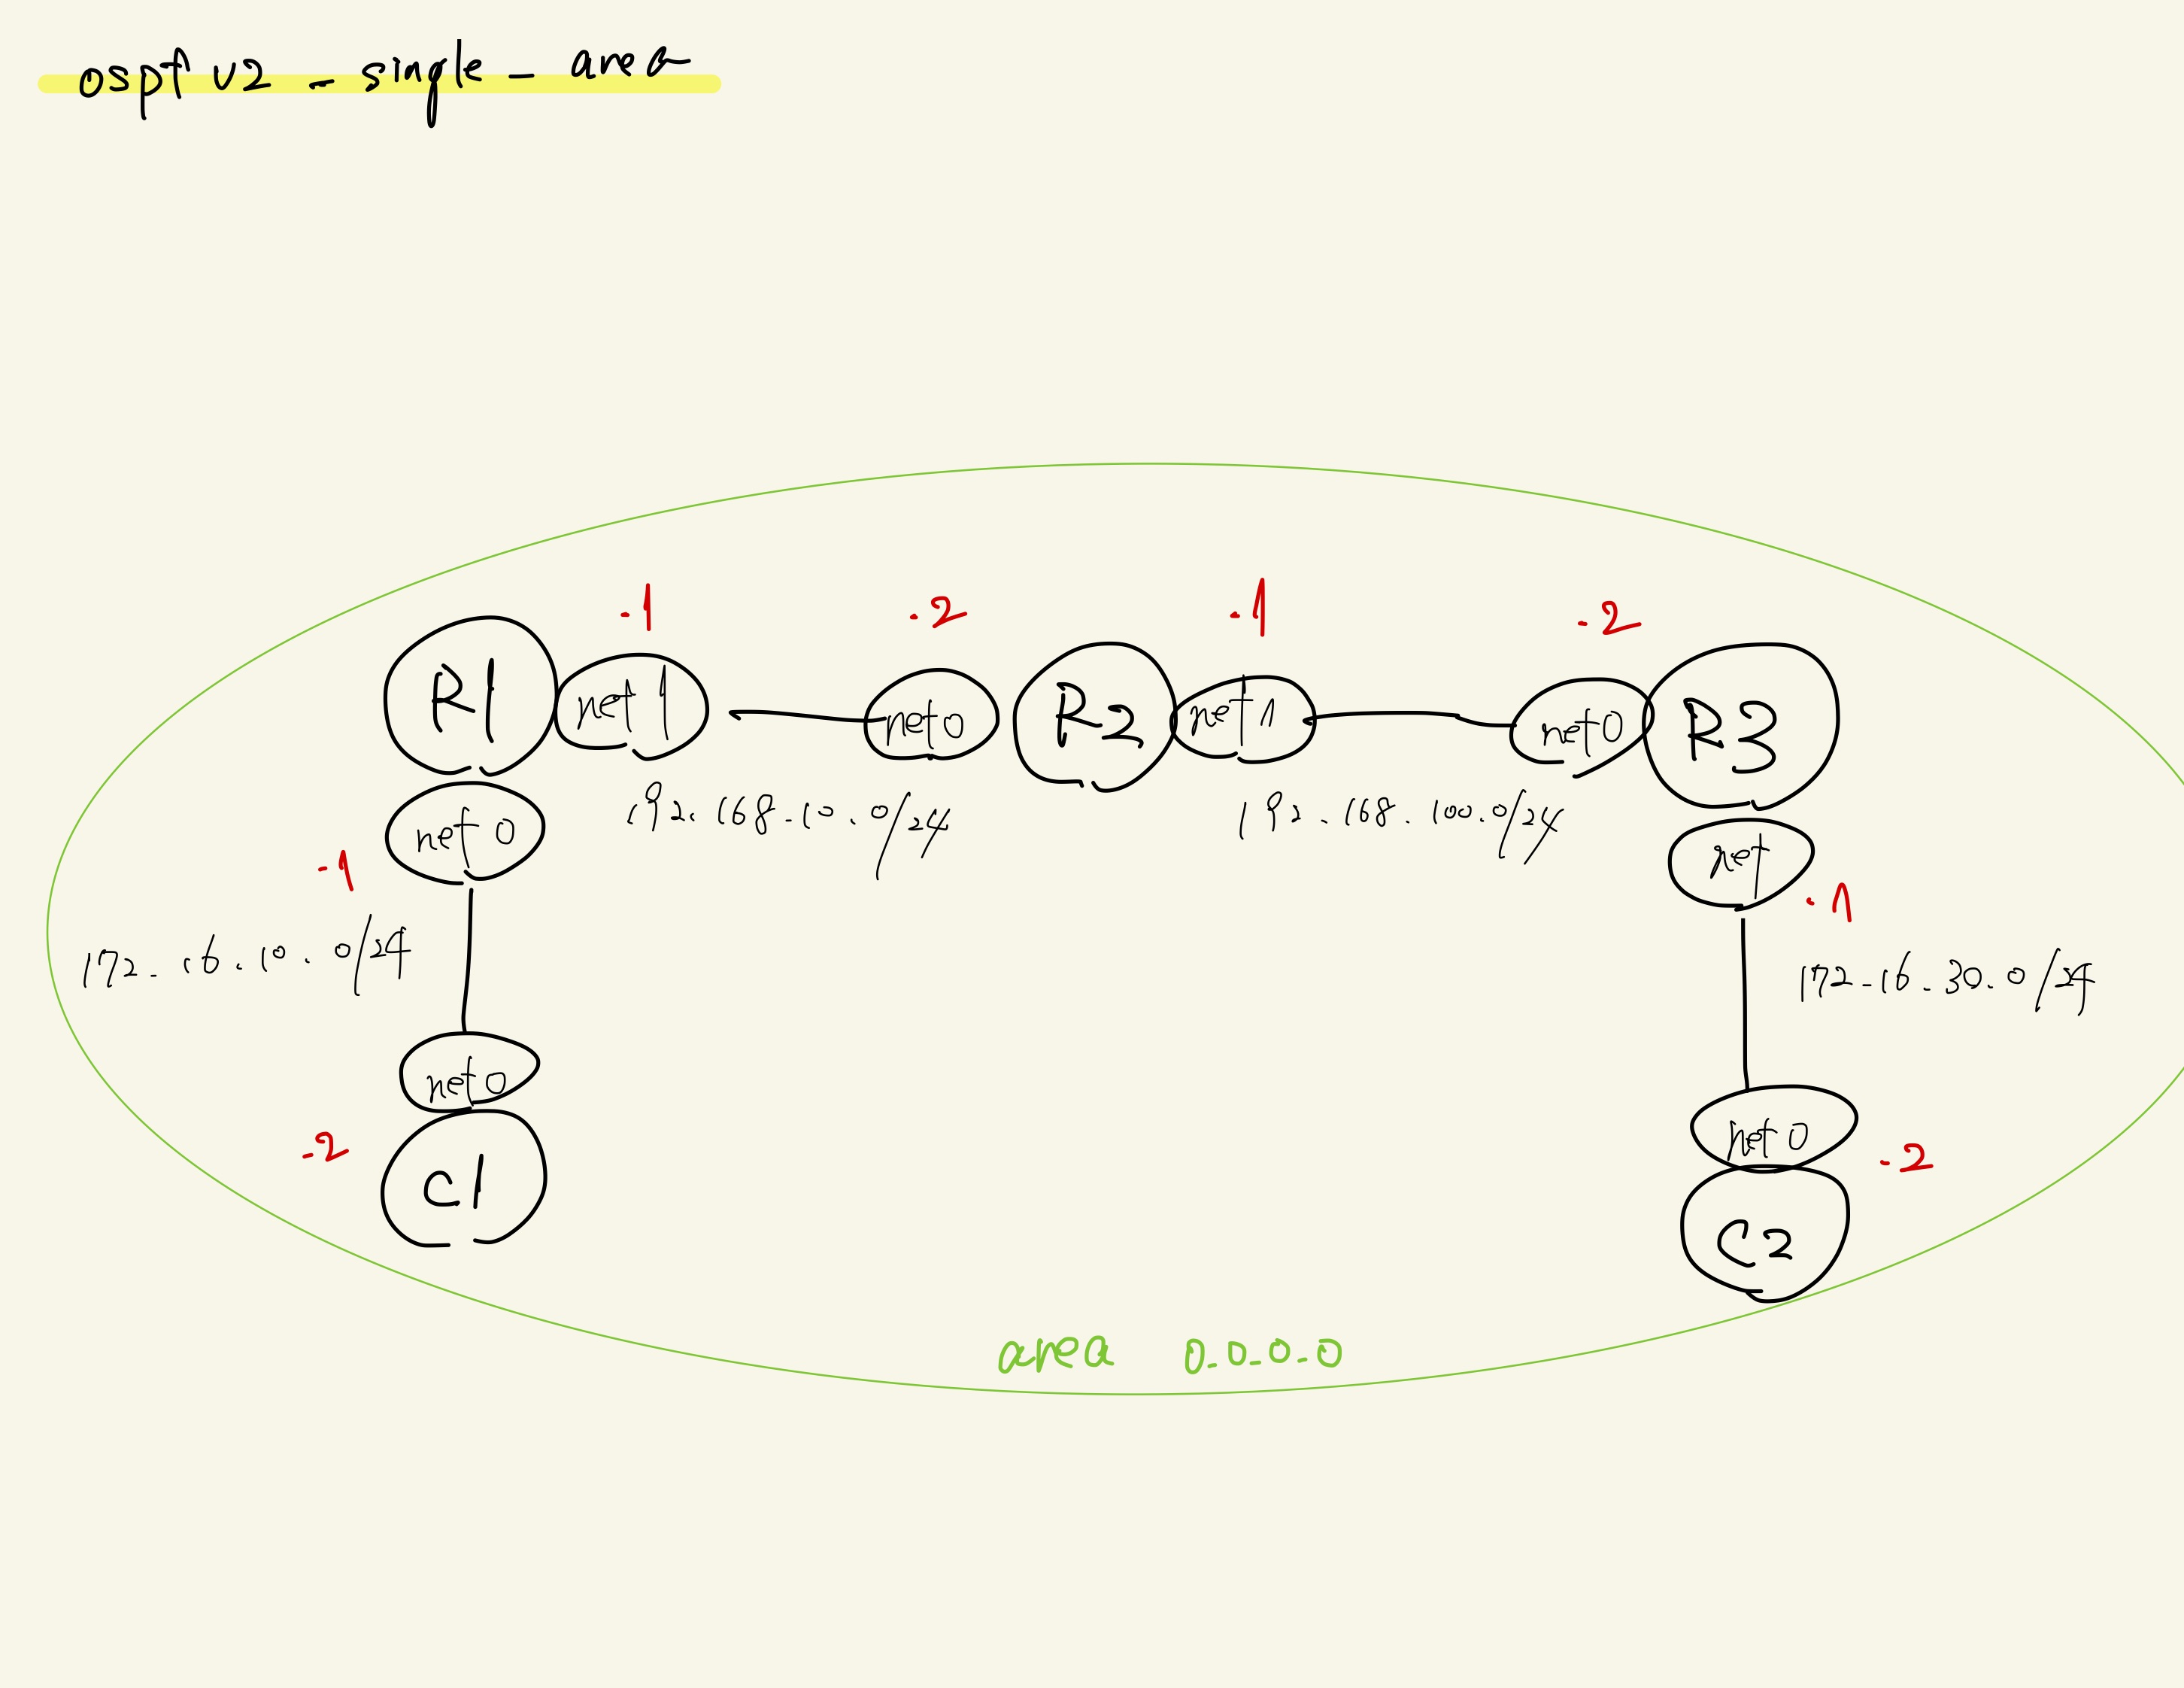 ospf v2 - single - area
.1
.2
.1
.2
R1
net 1
net0
R2
net1
net0
R3
192.168.10.0/24
192.168.100.0/24
net 0
net
.1
.1
172.16.10.0/24
172.16.30.0/24
net0
net0
.2
.2
C1
C2
area 0.0.0.0